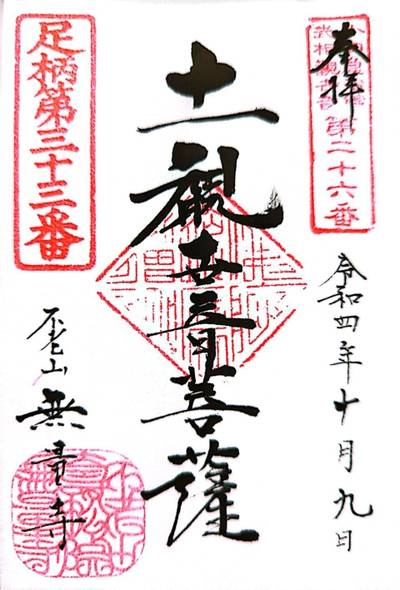 奉拝
第二十六番
令和四年十月九日
十一観世音菩薩
足柄第三十三番
不老山
無量寺